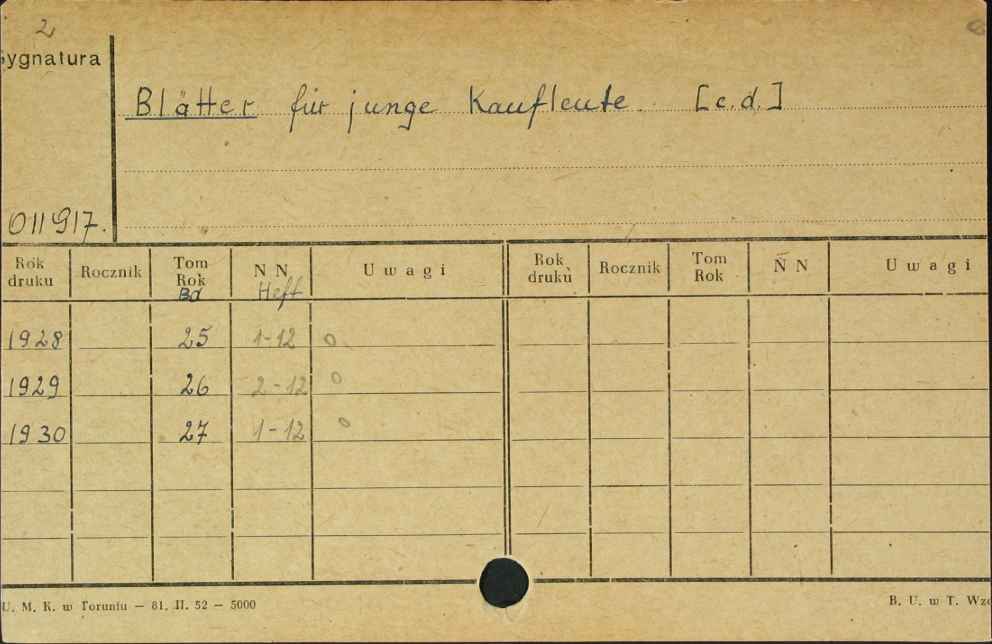 2
Sygnatura
Blätter für junge Kaufleute. [c.d.]
011917.
Rok druku Rocznik Tom Rok Bd N N Heft Uwagi Rok druku Rocznik Tom Rok N N Uwagi
1928 25 1-12 0
1929 26 2-12 0
1930 27 1-12 0
U. M. K. w Toruniu — 81. II. 52 — 5000 B. U. w T.